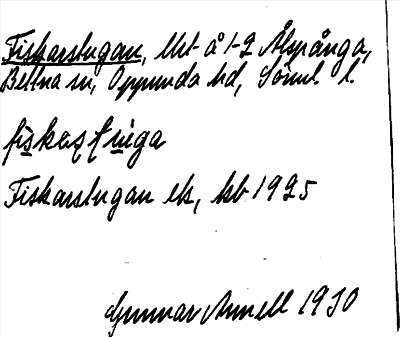 Fiskarstugan, lht å 1-2 Ålspånga,
Bettna sn, Oppunda hd, Söml. l.
Fiskarstugan ek, kb 1925
Gunnar Annell 1930